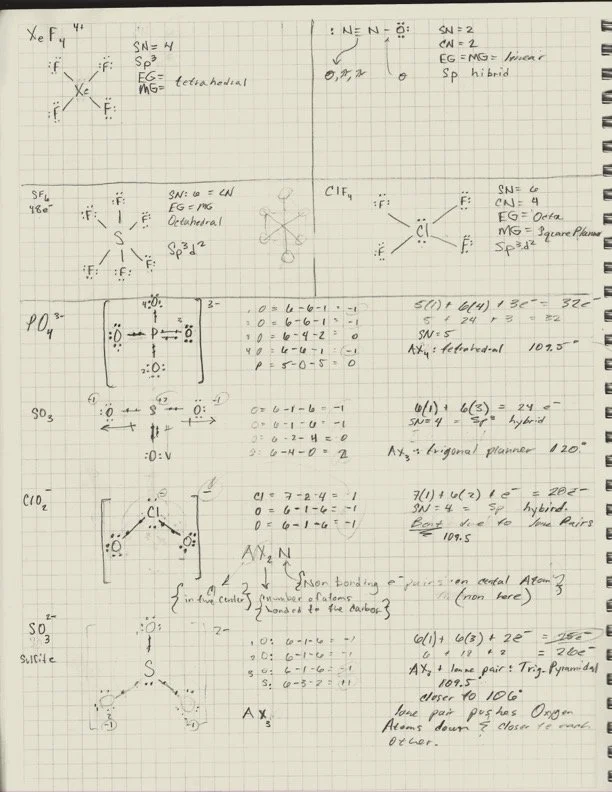 XeF₄ 4+
SN = 4
Sp³
EG =
MG = tetrahedral
:F: :F:
Xe
:F: :F:
:N≡N-Ö:
SN = 2
CN = 2
EG = MG = linear
Sp hibrid
SF₆
48e⁻
SN: 6 = CN
EG = MG
Octahedral
Sp³d²
F
F F
S
F F F
ClF₄
SN = 6
CN = 4
EG = Octa
MG = Square Planar
Sp³d²
F F
Cl
F F
PO₄³⁻
4 O
O P O
2 O
3-
1 O = 6-6-1 = -1
2 O = 6-6-1 = -1
3 O = 6-4-2 = 0
4 O = 6-6-1 = -1
P = 5-0-5 = 0
5(1) + 6(4) + 3e⁻ = 32e⁻
5 + 24 + 3 = 32
SN = 5
AX₄: tetrahedral 109.5°
SO₃
-1 +2 -1
O S O
O
O = 6-1-6 = -1
O = 6-1-6 = -1
O: 6-2-4 = 0
6-4-0 = 2
6(1) + 6(3) = 24 e⁻
SN = 4 = Sp³ hybrid
AX₃ = trigonal planner 120°
ClO₂⁻
Cl
O O
Cl = 7-2-4 = 1
O = 6-1-6 = -1
O = 6-1-6 = -1
7(1) + 6(2) + e⁻ = 20e⁻
SN = 4 = Sp hybird.
Bent due to lone Pairs
109.5
AX₂N
{in the center}
{number of atoms
bonded to the carbon}
{Non bonding e⁻ pairs on cental Atom}
(non here)
SO₃²⁻
Sulsite
O
S
O O
2-
-1 -1
1 O: 6-1-6 = -1
2 O: 6-1-6 = -1
3 O: 6-1-6 = -1
S: 6-3-2 = +1
AX₃
6(1) + 6(3) + 2e⁻ = 25e⁻
6 + 18 + 2 = 26e⁻
AX₃ + lone pair: Trig. Pyramidal
109.5°
closer to 106°
lone pair pushes Oxygen
Atoms down & closer to each
other.